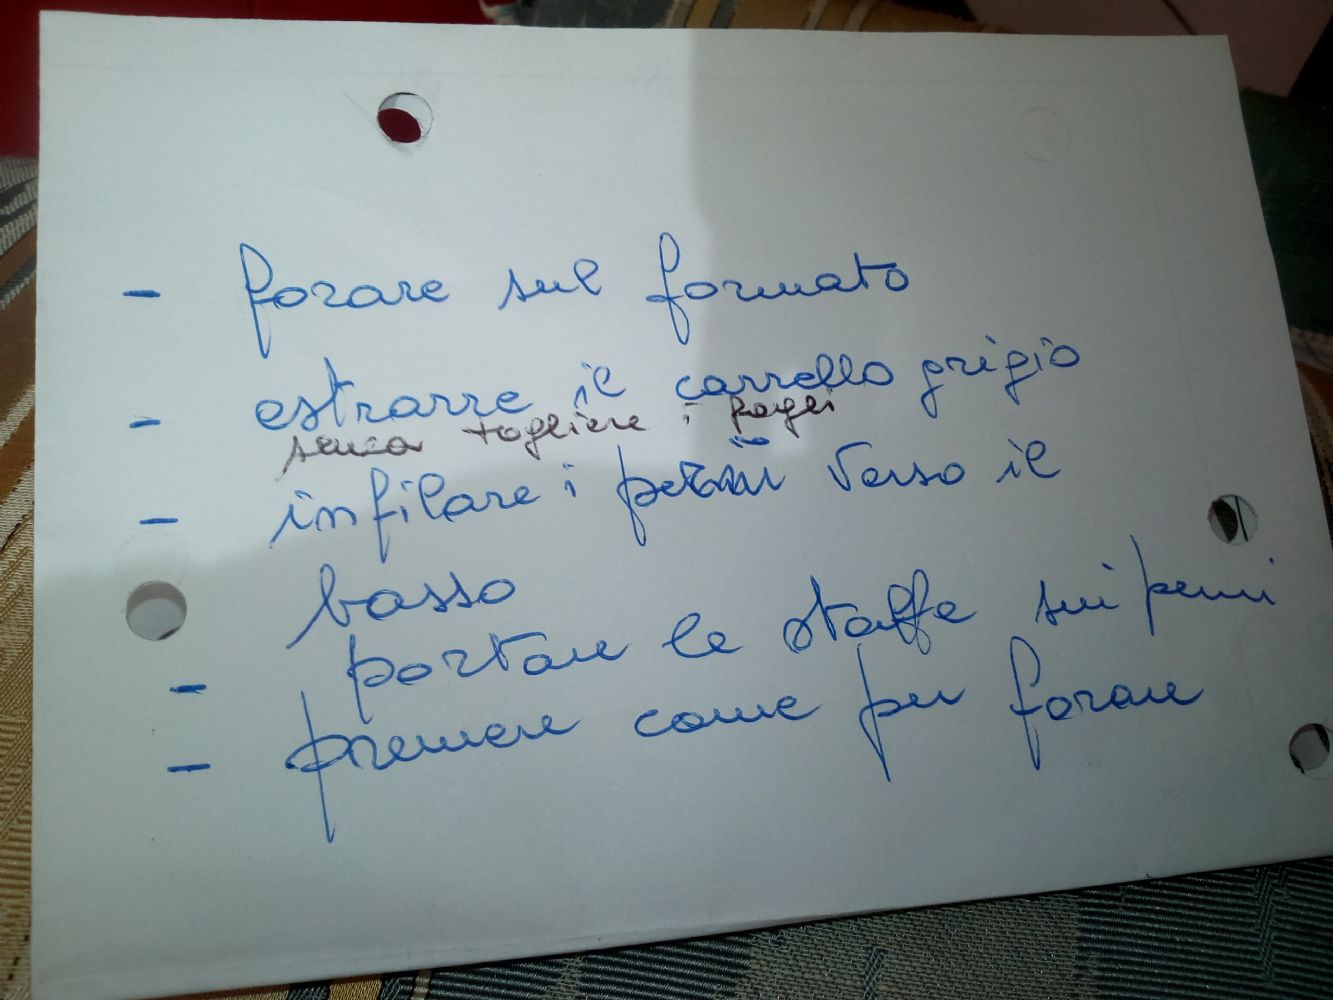 - forare sul formato
- estrarre il carrello grigio
senza togliere i fogli
- infilare i perni verso il
basso
- portare le staffe sui perni
- premere come per forare